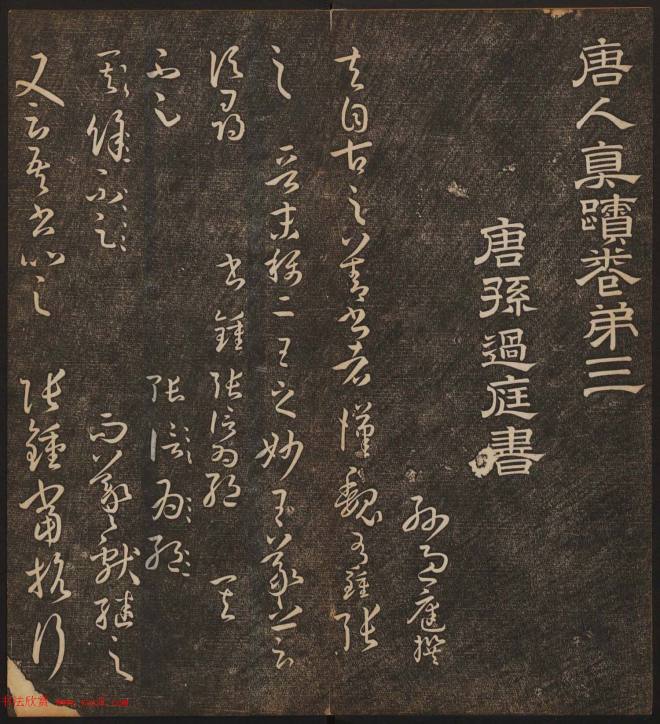 唐人真蹟卷弟三
唐孫過庭書
孫過庭撰
夫自古之善書者漢魏有鍾張
之 晉末稱二王之妙王羲之云
頃尋 書鍾張信為絕 其
不足 張信為絕
餘不足 而羲獻繼之
又云吾書比之 張鍾當抗行
书法欣赏